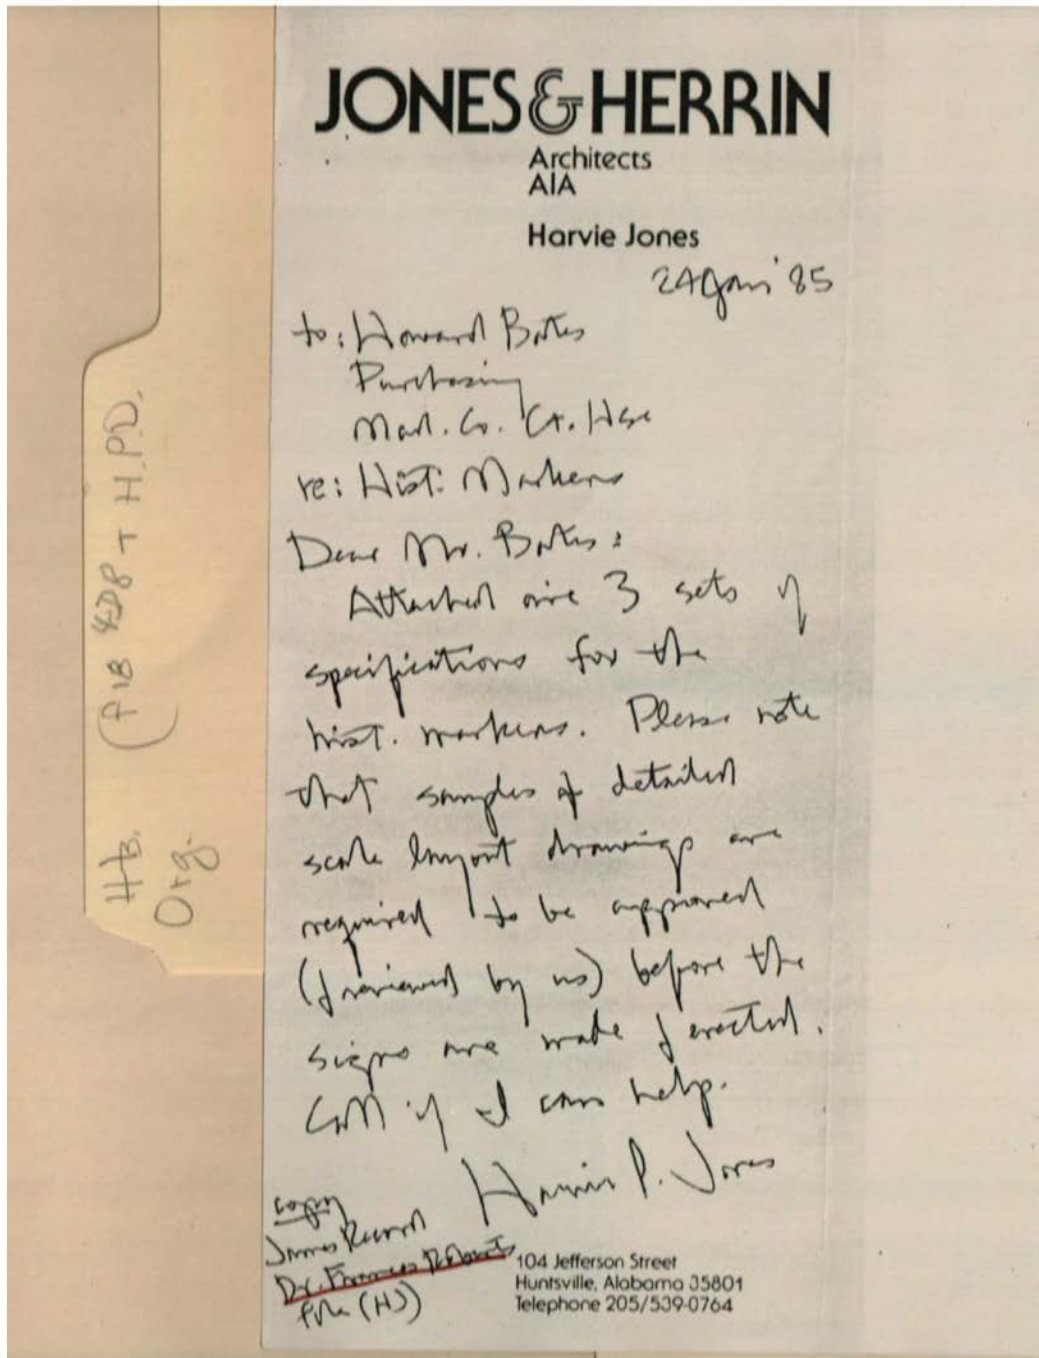 JONES & HERRIN
Architects
AIA
Harvie Jones
24 Jan '85
to: Howard Bates
Purchasing
Mad. Co. Ct. Hse
re: Hist. Markers
Dear Mr. Bates:
Attached are 3 sets of
specifications for the
hist. markers. Please note
that samples of detailed
scale layout drawings are
required to be approved
(& reviewed by us) before the
signs are made & erected.
Call if I can help.
Harvie P. Jones
copy
James Record
Dr. Frances Roberts
file (HJ)
104 Jefferson Street
Huntsville, Alabama 35801
Telephone 205/539-0764
Hb.
Org.
+ H.P.D.